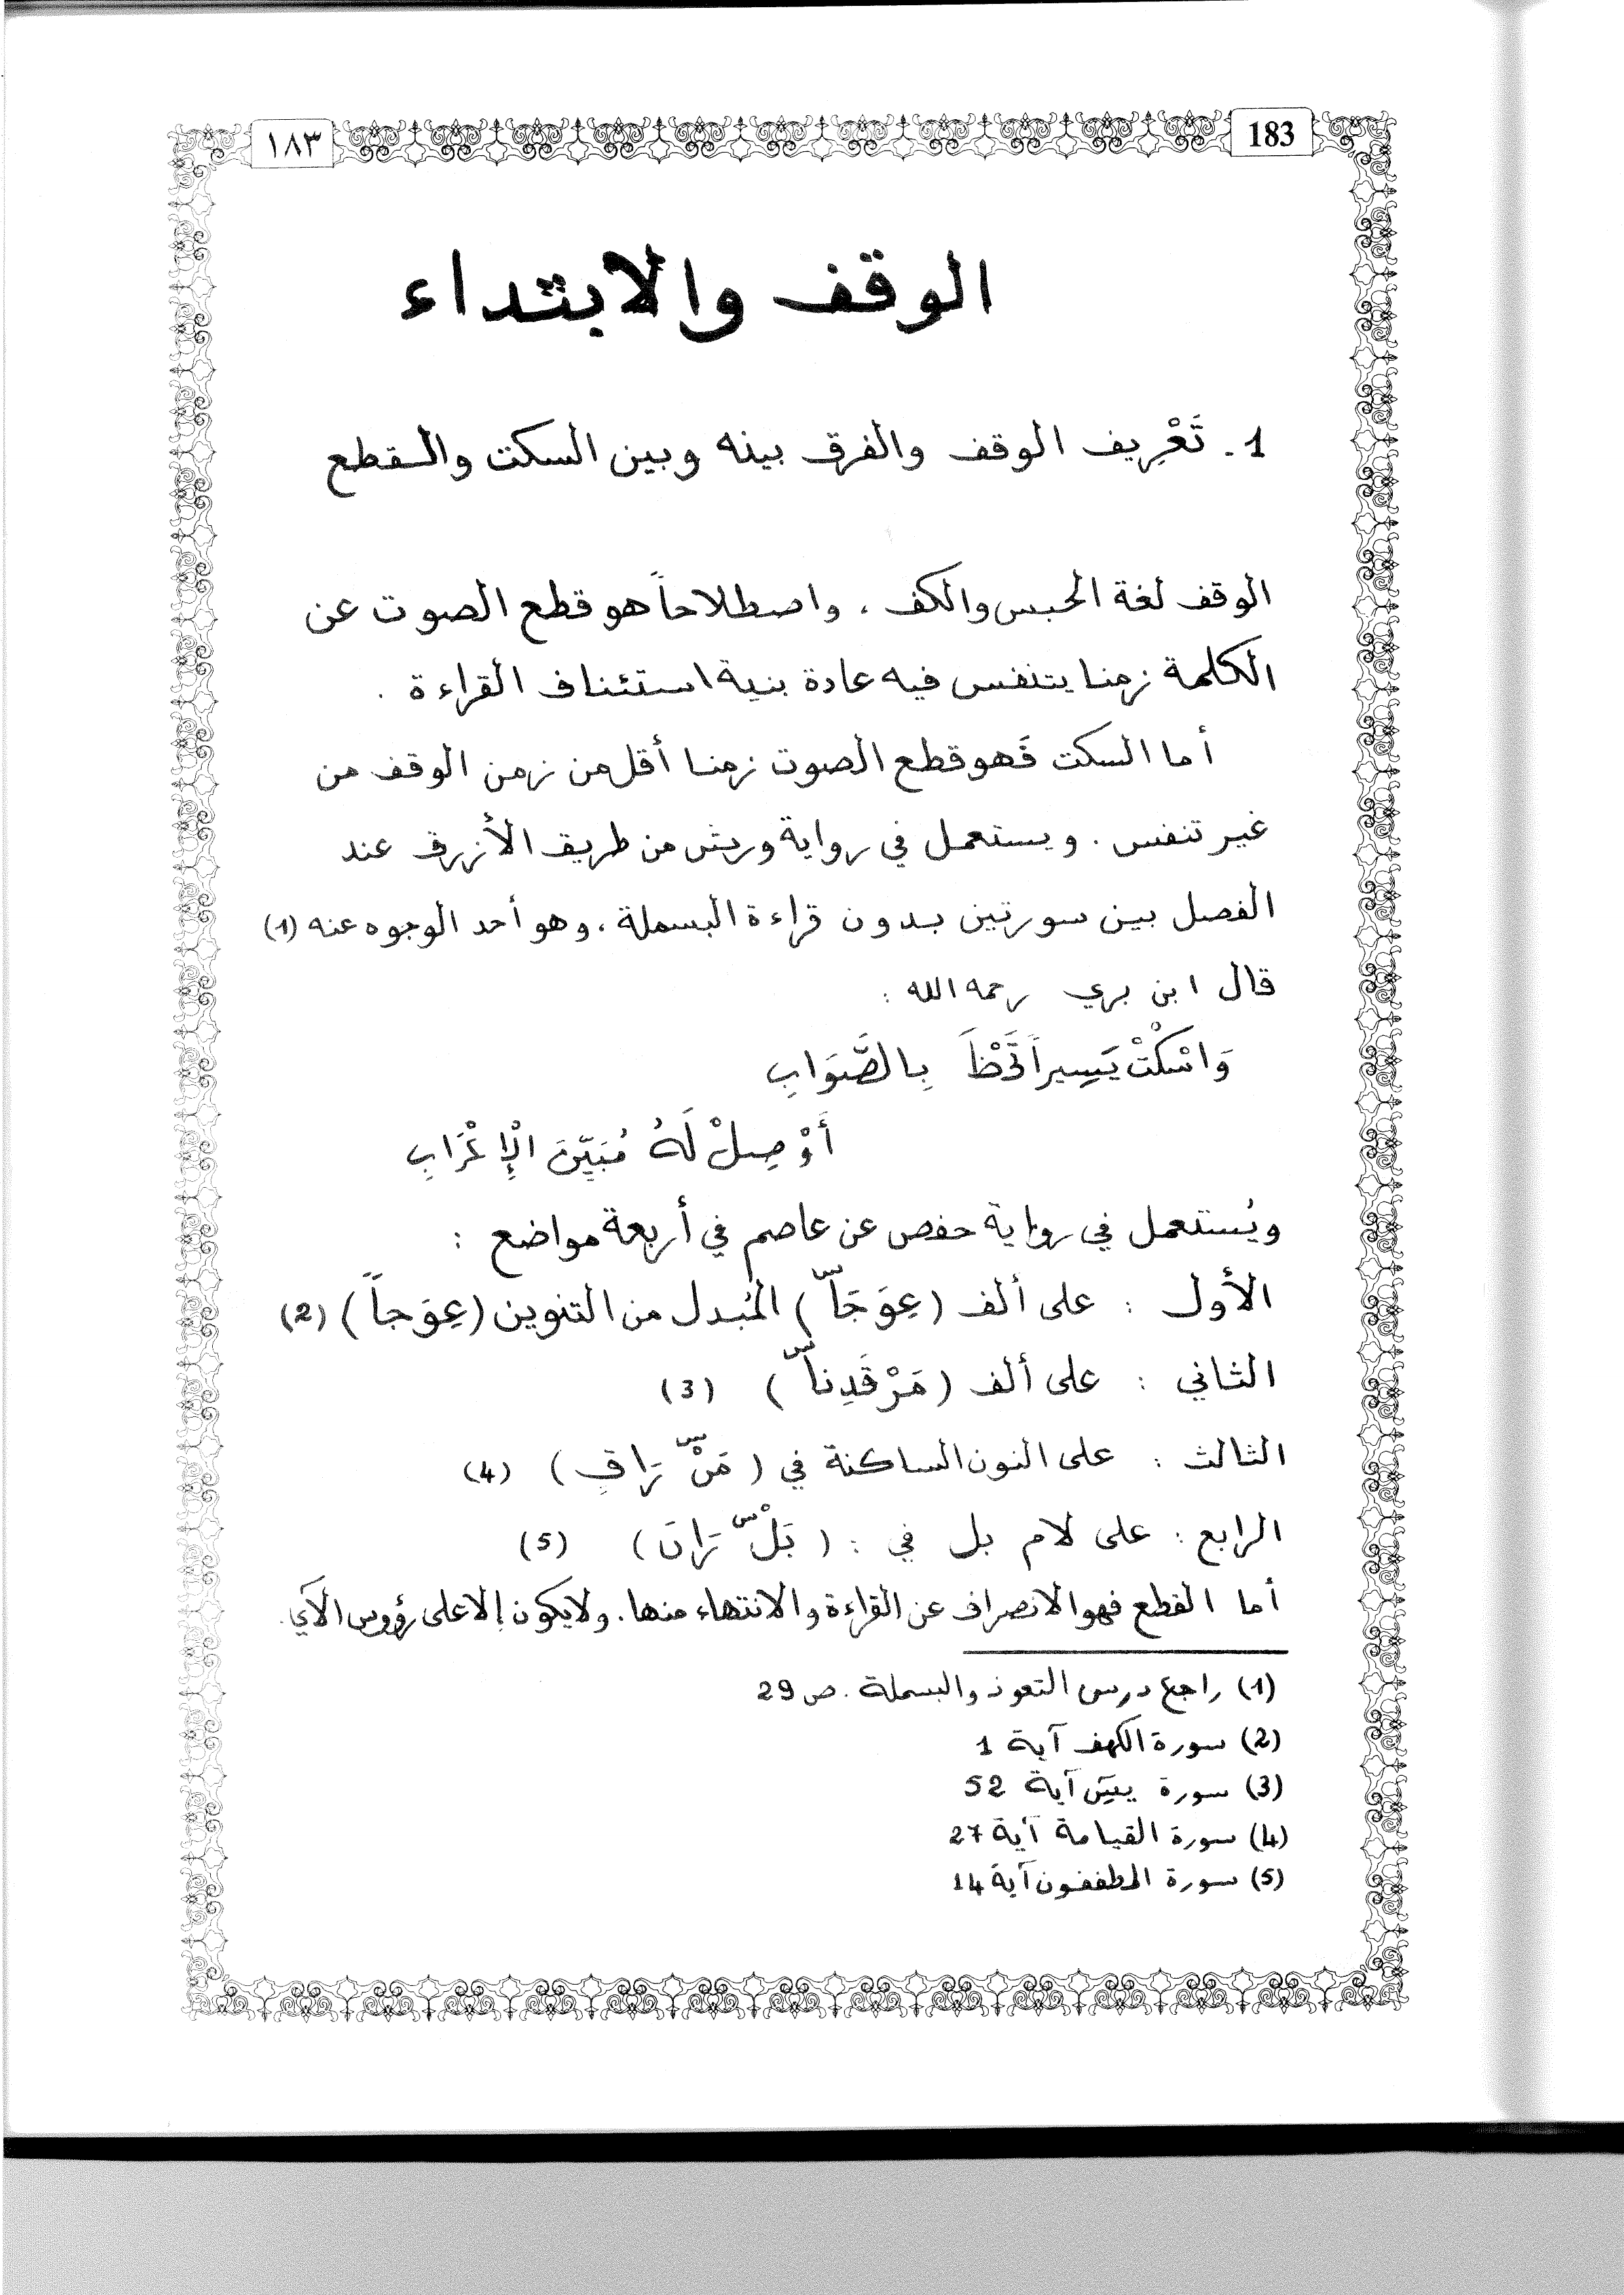 183
١٨٣
الوقف والابتداء
1. تَعْرِيف الوقف والفرق بينه وبين السكت والقطع
الوقف لغة الحبس والكف ، واصطلاحاً هو قطع الصوت عن
الكلمة زمنا يتنفس فيه عادة بنية استئناف القراءة .
أما السكت فَهو قطع الصوت زمنا أقل من زمن الوقف من
غير تنفس . ويستعمل في رواية ورش من طريق الأزرق عند
الفصل بين سورتين بدون قراءة البسملة ، وهو أحد الوجوه عنه (1)
قال ابن بري رحمه الله :
وَاسْكُتْ يَسِيراً تَحْظَ بِالصَّوَابِ
أَوْ صِلْ لَهُ مُبَيِّنَ الْإِعْرَابِ
ويُستعمل في رواية حفص عن عاصم في أربعة مواضع :
الأول : على ألف (عِوَجَاۜ) المُبدل من التنوين (عِوَجاً) (2)
الثاني : على ألف (مَرْقَدِناۜ) (3)
الثالث : على النون الساكنة في (مَنْۜ رَاقٍ) (4)
الرابع : على لام بل في : (بَلْۜ رَانَ) (5)
أما القطع فهو الانصراف عن القراءة والانتهاء منها . ولا يكون إلا على رؤوس الآي .
(1) راجع درس التعوذ والبسملة . ص 29
(2) سورة الكهف آية 1
(3) سورة يسٓ آية 52
(4) سورة القيامة آية 27
(5) سورة المطففون آية 14